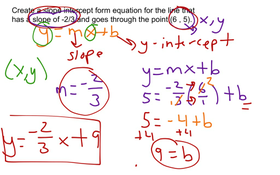 Create a slope intercept form equation for the line that
has a slope of -2/3 and goes through the point (6 , 5).
x, y
y = mx + b
slope
y - intercept
(x,y)
m = -2/3
y = mx + b
5 = -2/3 (6/1) + b
2
5 = -4 + b
+4 +4
9 = b
y = -2/3 x + 9